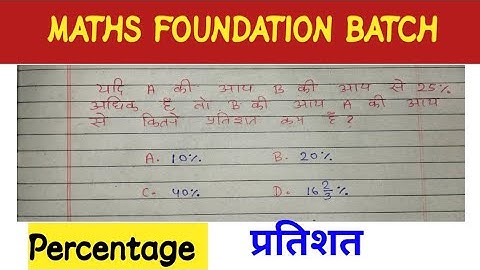 MATHS FOUNDATION BATCH
यदि A की आय B की आय से 25%
अधिक है, तो B की आय A की आय
से कितने प्रतिशत कम है?
A. 10%. B. 20%.
C. 40%. D. 16 2/3 %.
Percentage प्रतिशत